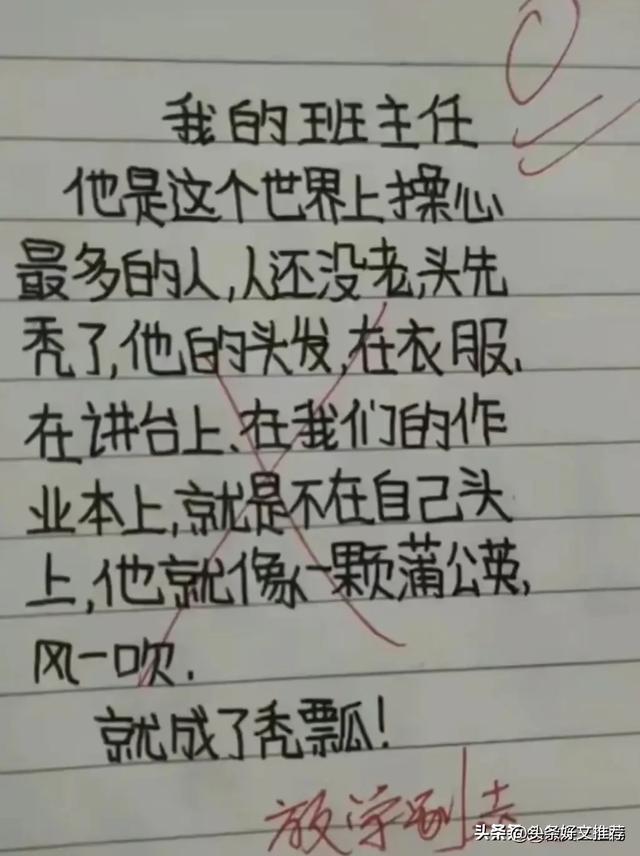 0
我的班主任
他是这个世界上操心
最多的人,人还没老,头先
秃了,他的头发,在衣服、
在讲台上、在我们的作
业本上,就是不在自己头
上,他就像一颗蒲公英,
风一吹.
就成了秃瓢!
放学别去
头条 @头条好文推荐